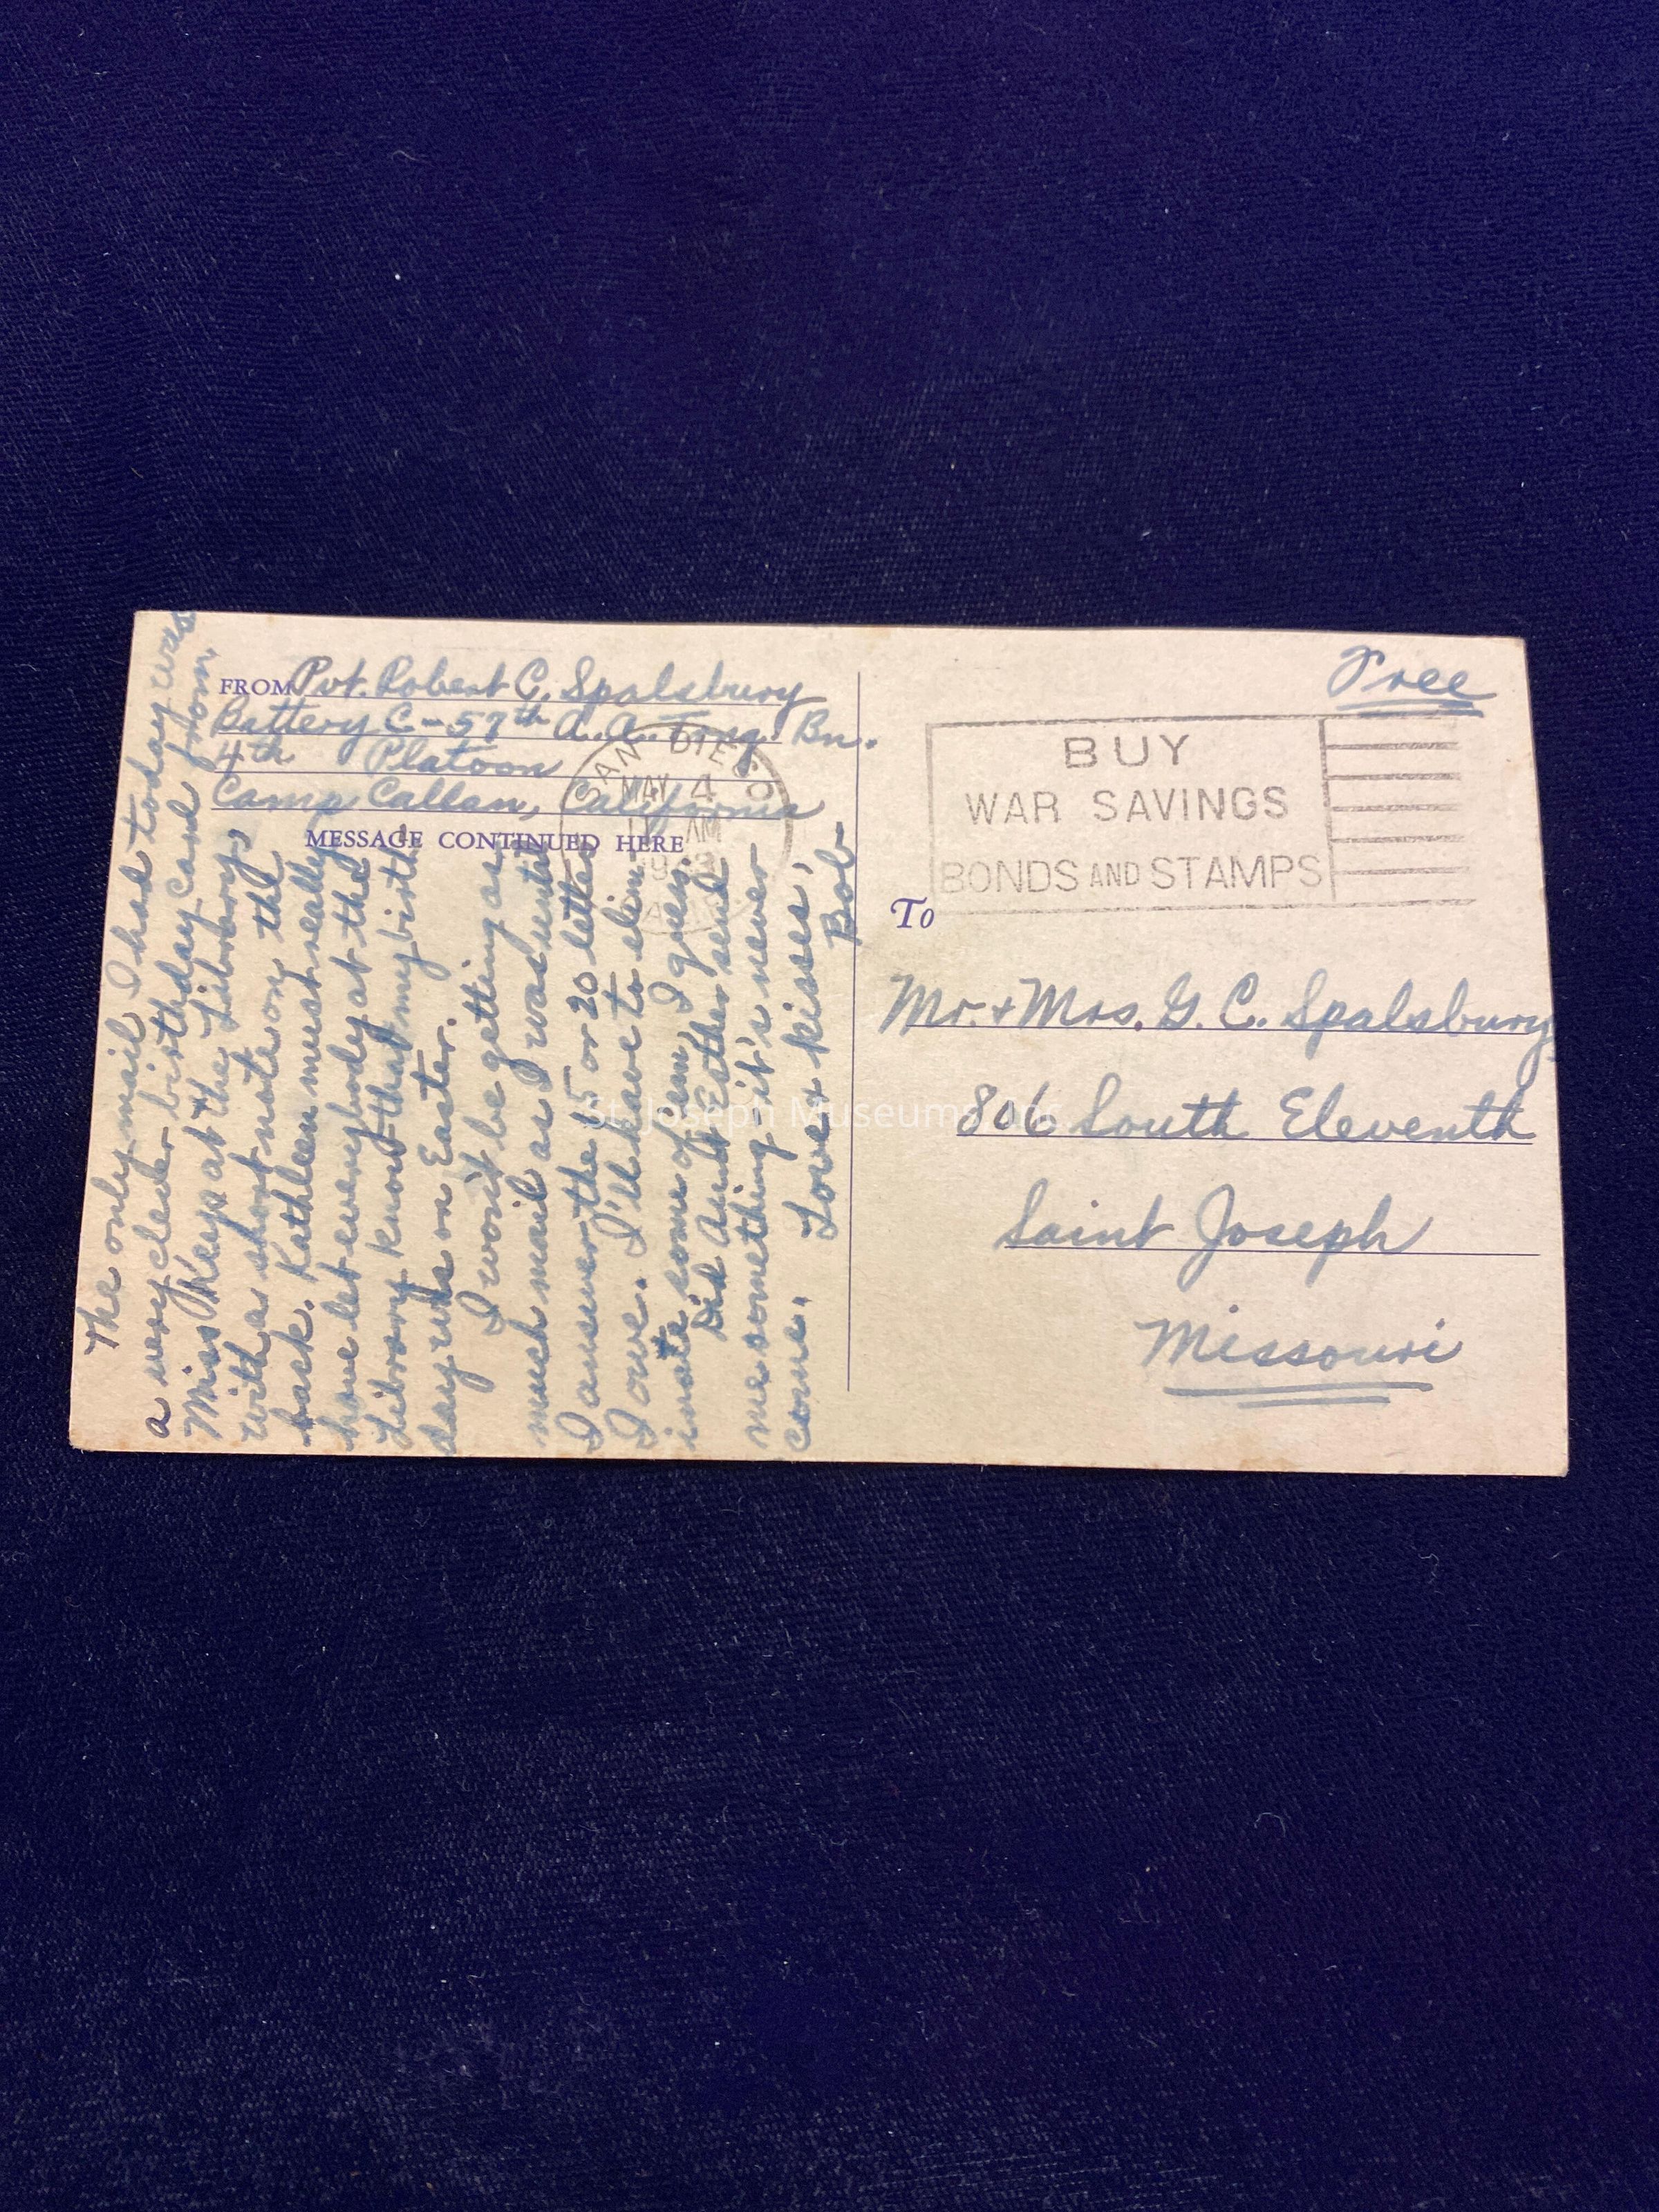 FROM Pvt. Robert C. Spalsbury
Battery C-57th A.A. Trng. Bn.
4th Platoon
Camp Callan, California
MESSAGE CONTINUED HERE
SAN DIEGO
MAY 4
AM
The only mail I had today was
a very clever birthday card from
Miss Keys at the Library
with a short note on the
back. Kathleen must really
have let everybody at the
Library know that my birth
day was on Easter.
I won't be getting as
much mail as I was until
I answer the 15 or 20 letters
I owe. I'll have to elim-
inate some of 'em, I guess.
Did Aunt Esther send
me something - it's never
come.
Love & kisses,
Bob
Free
BUY
WAR SAVINGS
BONDS AND STAMPS
To
Mr. + Mrs. G. C. Spalsbury
806 South Eleventh
Saint Joseph
Missouri
St. Joseph Museums, Inc.